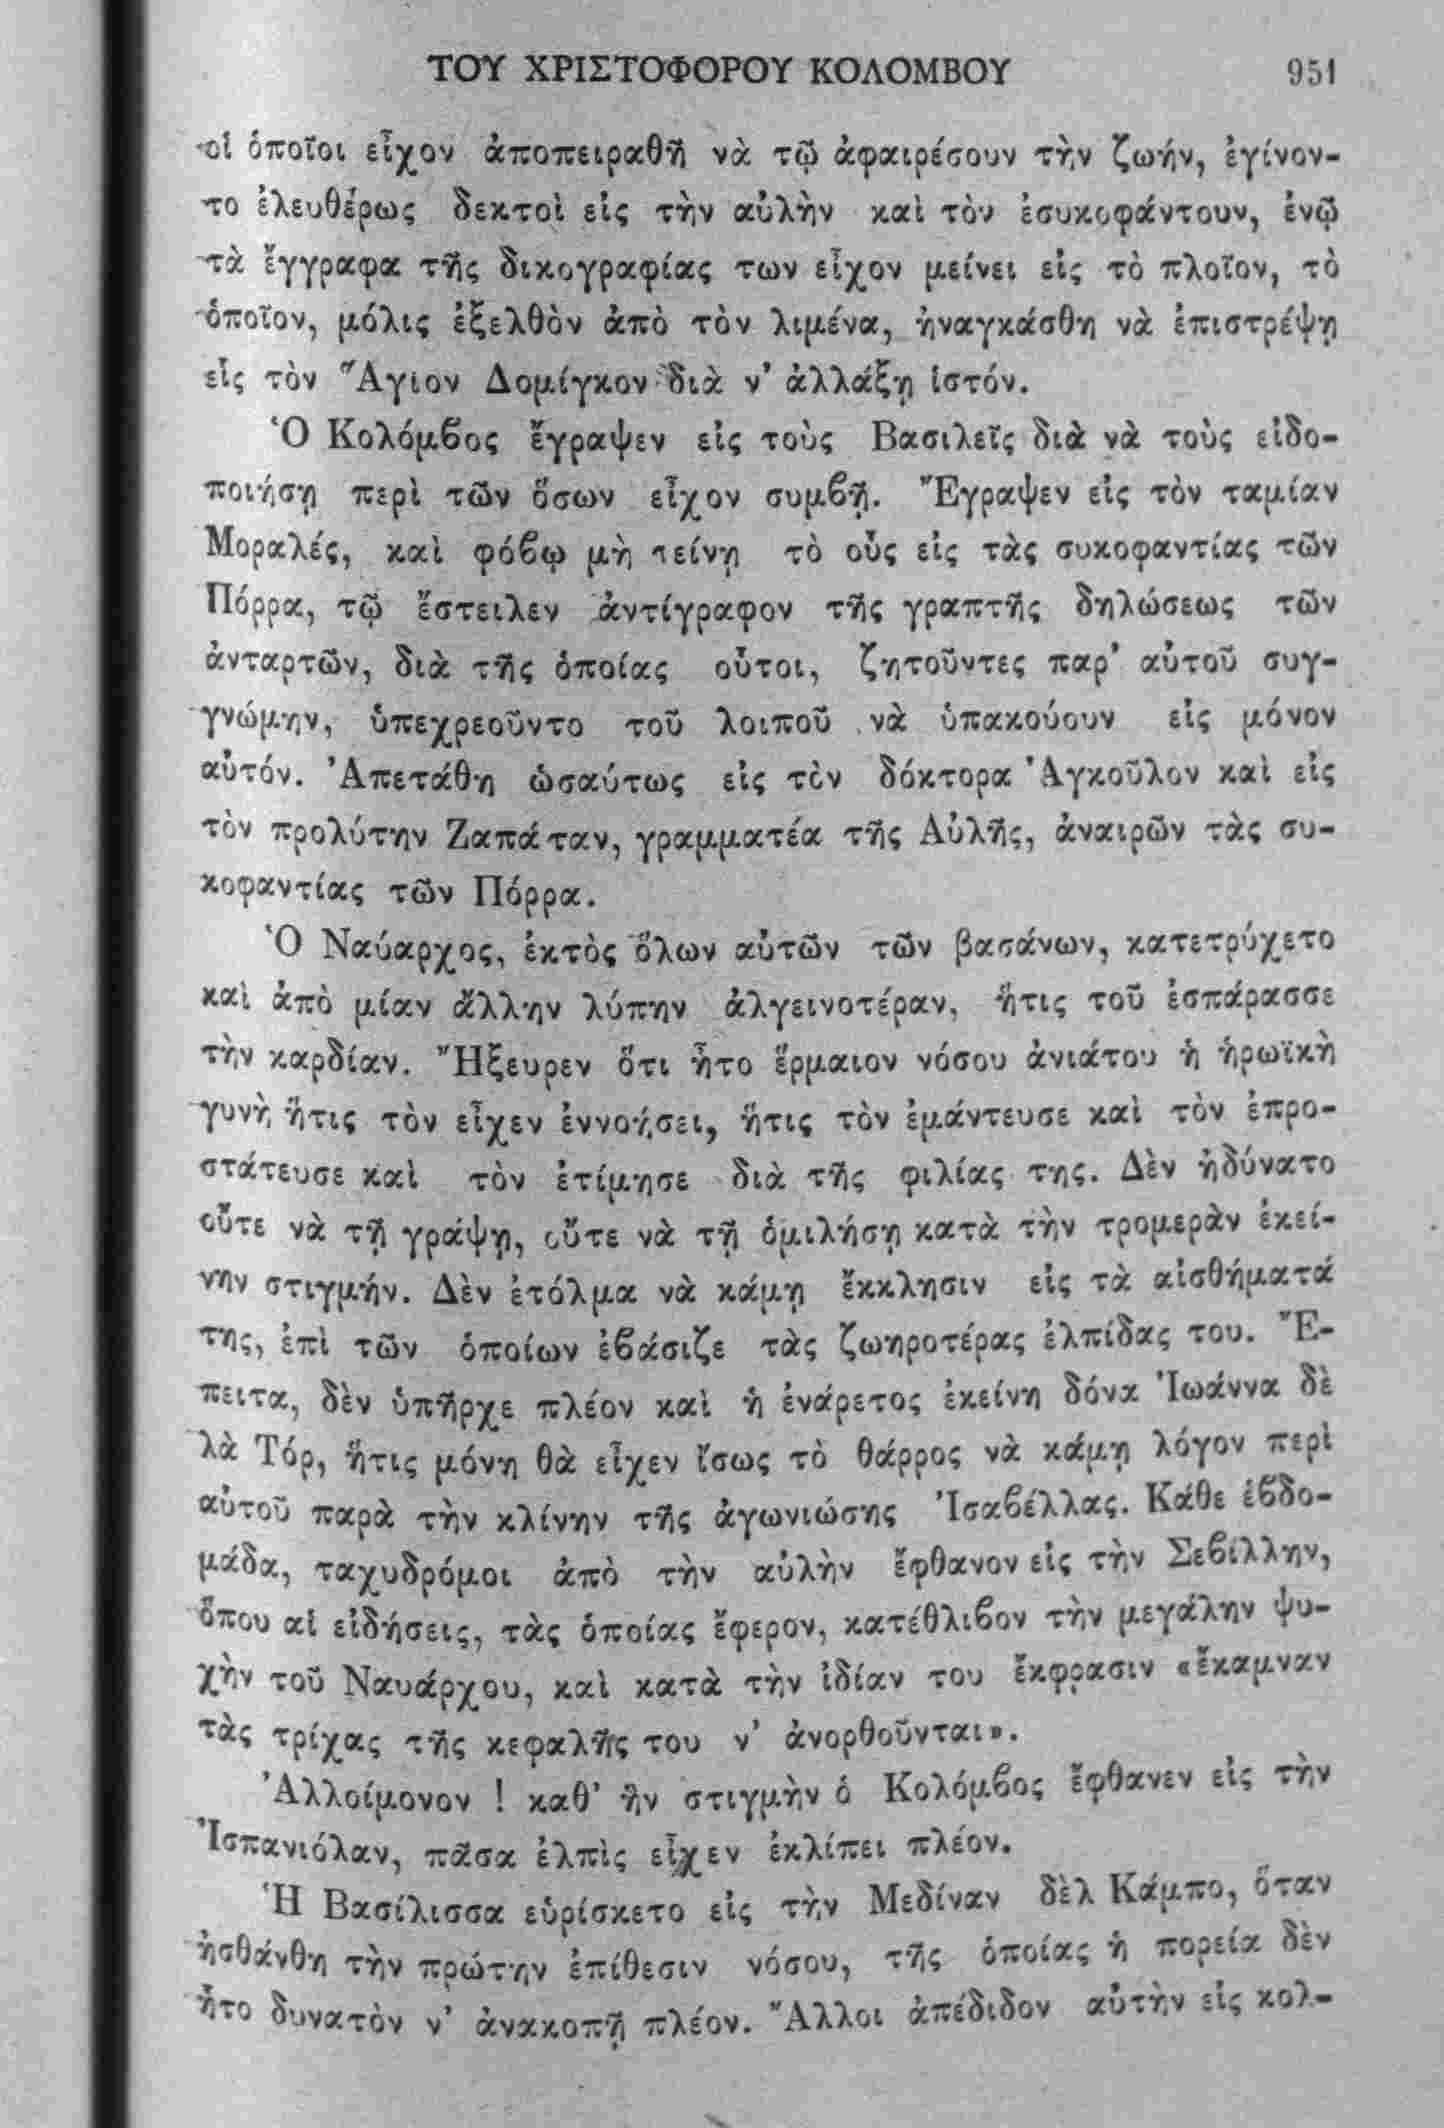 ΤΟΥ ΧΡΙΣΤΟΦΟΡΟΥ ΚΟΛΟΜΒΟΥ 951
οἱ ὁποῖοι εἶχον ἀποπειραθῆ νὰ τῷ ἀφαιρέσουν τὴν ζωήν, ἐγίνον-
το ἐλευθέρως δεκτοὶ εἰς τὴν αὐλὴν καὶ τὸν ἐσυκοφάντουν, ἐνῷ
τὰ ἔγγραφα τῆς δικογραφίας των εἶχον μείνει εἰς τὸ πλοῖον, τὸ
ὁποῖον, μόλις ἐξελθὸν ἀπὸ τὸν λιμένα, ἠναγκάσθη νὰ ἐπιστρέψῃ
εἰς τὸν Ἅγιον Δομίγκον διὰ ν' ἀλλάξῃ ἱστόν.
Ὁ Κολόμβος ἔγραψεν εἰς τοὺς Βασιλεῖς διὰ νὰ τοὺς εἰδο-
ποιήσῃ περὶ τῶν ὅσων εἶχον συμβῆ. Ἔγραψεν εἰς τὸν ταμίαν
Μοραλές, καὶ φόβῳ μὴ τείνῃ τὸ οὖς εἰς τὰς συκοφαντίας τῶν
Πόρρα, τῷ ἔστειλεν ἀντίγραφον τῆς γραπτῆς δηλώσεως τῶν
ἀνταρτῶν, διὰ τῆς ὁποίας οὗτοι, ζητοῦντες παρ' αὐτοῦ συγ-
γνώμην, ὑπεχρεοῦντο τοῦ λοιποῦ νὰ ὑπακούουν εἰς μόνον
αὐτόν. Ἀπετάθη ὡσαύτως εἰς τὸν δόκτορα Ἀγκοῦλον καὶ εἰς
τὸν προλύτην Ζαπάταν, γραμματέα τῆς Αὐλῆς, ἀναιρῶν τὰς συ-
κοφαντίας τῶν Πόρρα.
Ὁ Ναύαρχος, ἐκτὸς ὅλων αὐτῶν τῶν βασάνων, κατετρύχετο
καὶ ἀπὸ μίαν ἄλλην λύπην ἀλγεινοτέραν, ἥτις τοῦ ἐσπάρασσε
τὴν καρδίαν. Ἤξευρεν ὅτι ἦτο ἕρμαιον νόσου ἀνιάτου ἡ ἡρωϊκὴ
γυνὴ ἥτις τὸν εἶχεν ἐννοήσει, ἥτις τὸν ἐμάντευσε καὶ τὸν ἐπρο-
στάτευσε καὶ τὸν ἐτίμησε διὰ τῆς φιλίας της. Δὲν ἠδύνατο
οὔτε νὰ τῇ γράψῃ, οὔτε νὰ τῇ ὁμιλήσῃ κατὰ τὴν τρομερὰν ἐκεί-
νην στιγμήν. Δὲν ἐτόλμα νὰ κάμῃ ἔκκλησιν εἰς τὰ αἰσθήματά
της, ἐπὶ τῶν ὁποίων ἐβάσιζε τὰς ζωηροτέρας ἐλπίδας του. Ἔ-
πειτα, δὲν ὑπῆρχε πλέον καὶ ἡ ἐνάρετος ἐκείνη δόνα Ἰωάννα δὲ
λὰ Τόρ, ἥτις μόνη θὰ εἶχεν ἴσως τὸ θάρρος νὰ κάμῃ λόγον περὶ
αὐτοῦ παρὰ τὴν κλίνην τῆς ἀγωνιώσης Ἰσαβέλλας. Κάθε ἑβδο-
μάδα, ταχυδρόμοι ἀπὸ τὴν αὐλὴν ἔφθανον εἰς τὴν Σεβίλλην,
ὅπου αἱ εἰδήσεις, τὰς ὁποίας ἔφερον, κατέθλιβον τὴν μεγάλην ψυ-
χὴν τοῦ Ναυάρχου, καὶ κατὰ τὴν ἰδίαν του ἔκφρασιν «ἔκαμναν
τὰς τρίχας τῆς κεφαλῆς του ν' ἀνορθοῦνται».
Ἀλλοίμονον ! καθ' ἣν στιγμὴν ὁ Κολόμβος ἔφθανεν εἰς τὴν
Ἰσπανιόλαν, πᾶσα ἐλπὶς εἶχεν ἐκλίπει πλέον.
Ἡ Βασίλισσα εὑρίσκετο εἰς τὴν Μεδίναν δὲλ Κάμπο, ὅταν
ᾐσθάνθη τὴν πρώτην ἐπίθεσιν νόσου, τῆς ὁποίας ἡ πορεία δὲν
ἦτο δυνατὸν ν' ἀνακοπῇ πλέον. Ἄλλοι ἀπέδιδον αὐτὴν εἰς κολ-